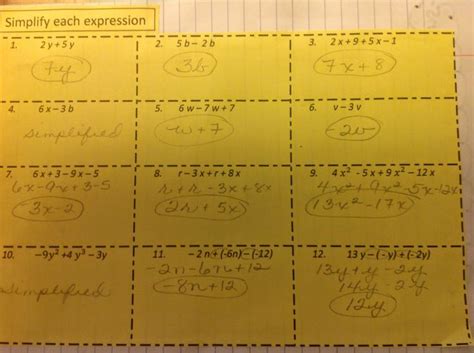 Simplify each expression
1. 2y+5y
7y
2. 5b-2b
3b
3. 2x+9+5x-1
7x+8
4. 6x-3b
simplified
5. 6w-7w+7
-w+7
6. v-3v
-2v
7. 6x+3-9x-5
6x-9x+3-5
-3x-2
8. r-3x+r+8x
r+r-3x+8x
2r+5x
9. 4x² -5x+9x²-12x
4x²+9x²-5x-12x
13x²-17x
10. -9y²+4y³-3y
simplified
11. -2n+(-6n)-(-12)
-2n-6n+12
-8n+12
12. 13y-(-y)+(-2y)
13y+y-2y
14y-2y
12y